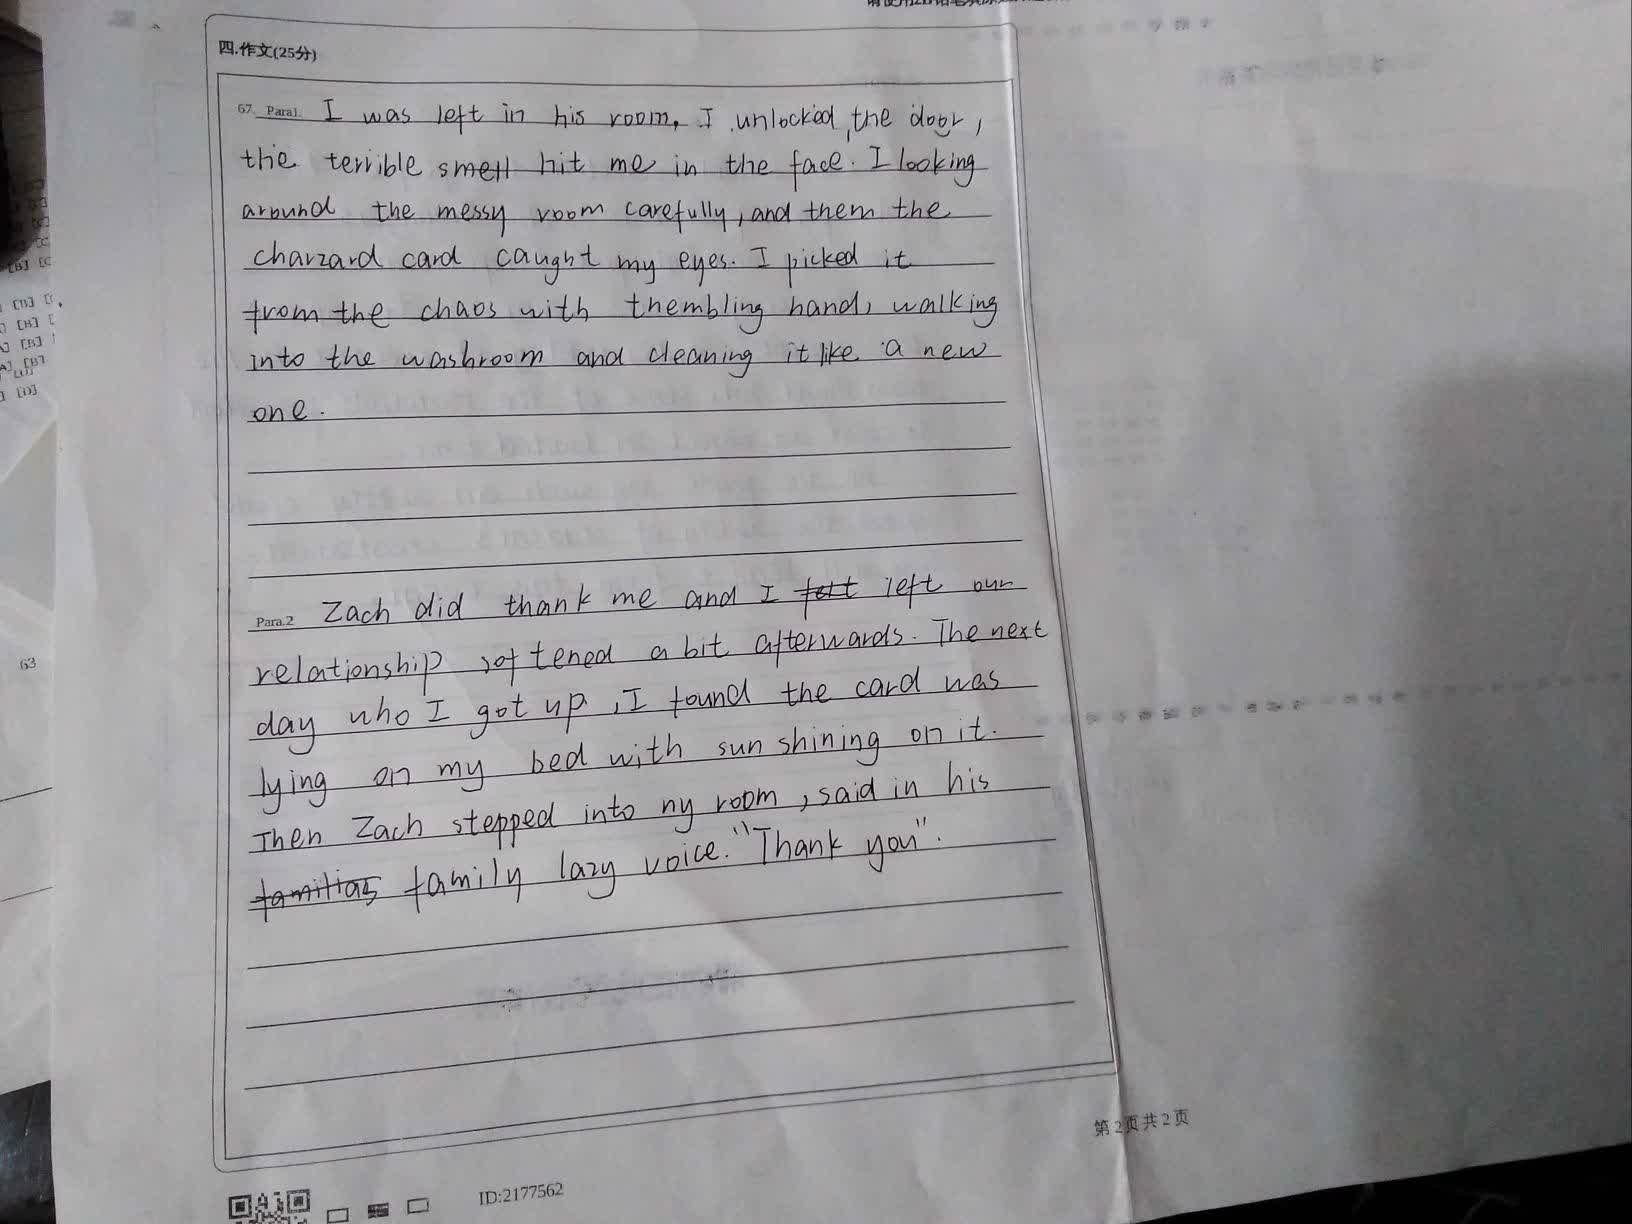 四.作文(25分)
67. Para1. I was left in his room. I unlocked the door,
the terrible smell hit me in the face. I looking
around the messy room carefully, and them the
charzard card caught my eyes. I picked it
from the chaos with thembling hand, walking
into the washroom and cleaning it like a new
one.
Para.2 Zach did thank me and I felt left our
relationship softened a bit afterwards. The next
day who I got up, I found the card was
lying on my bed with sun shining on it.
Then Zach stepped into my room, said in his
familiar family lazy voice. "Thank you".
第2页共2页
ID:2177562
63